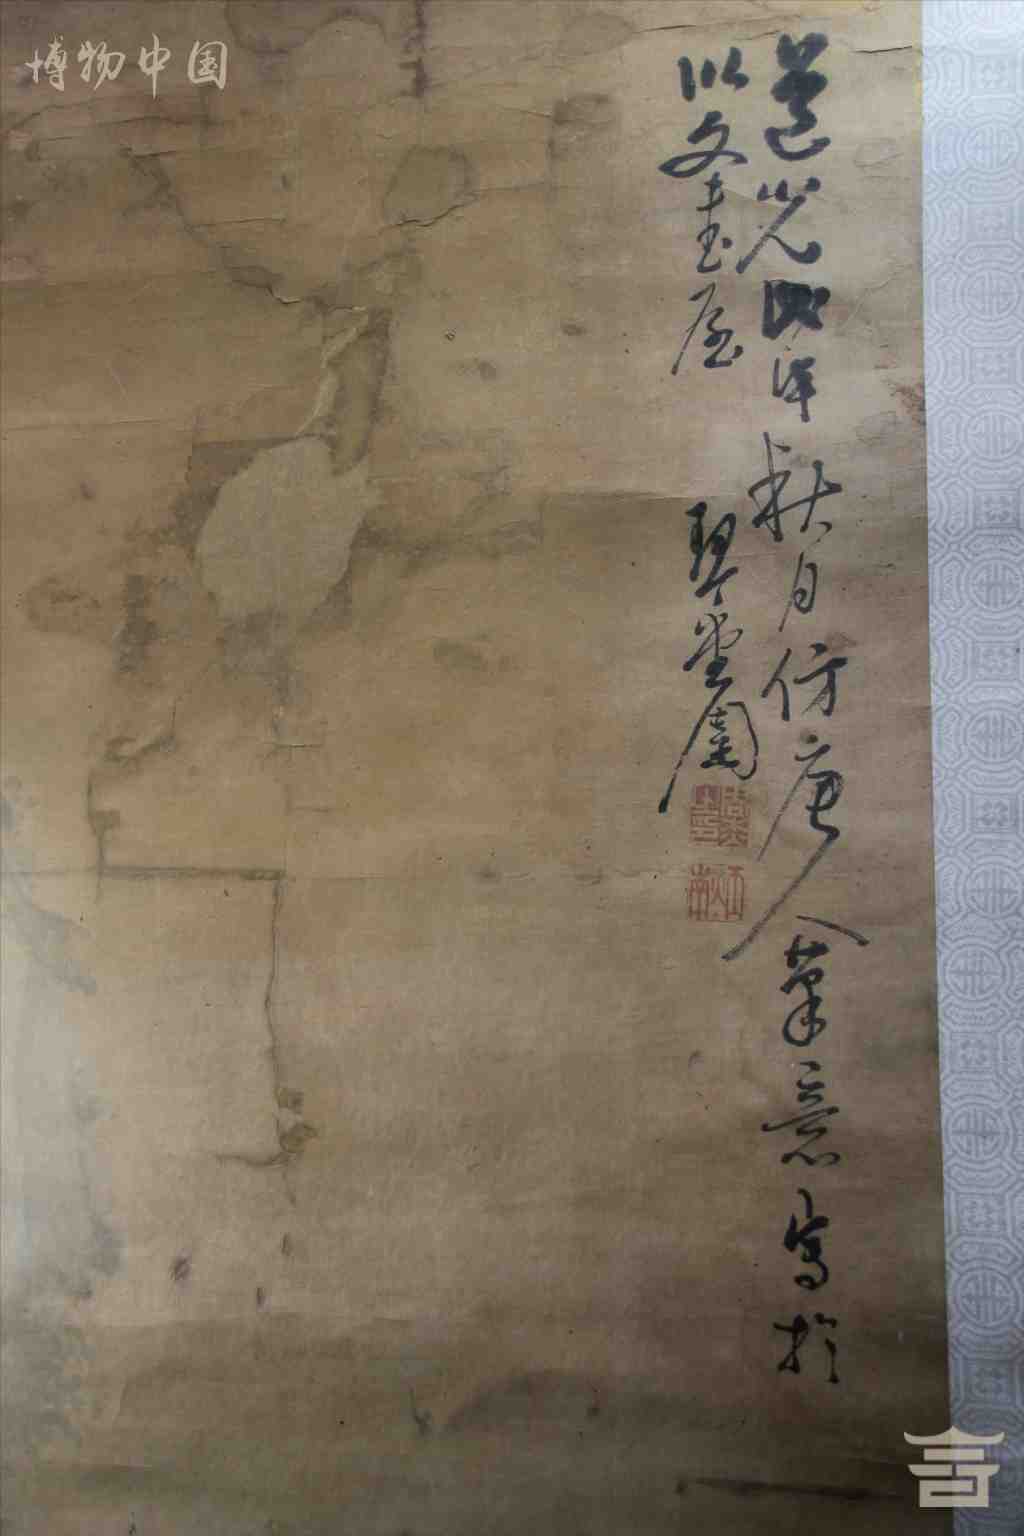 博物中国
道光四年秋月仿唐人筆意寫於
以文書屋
琴堂